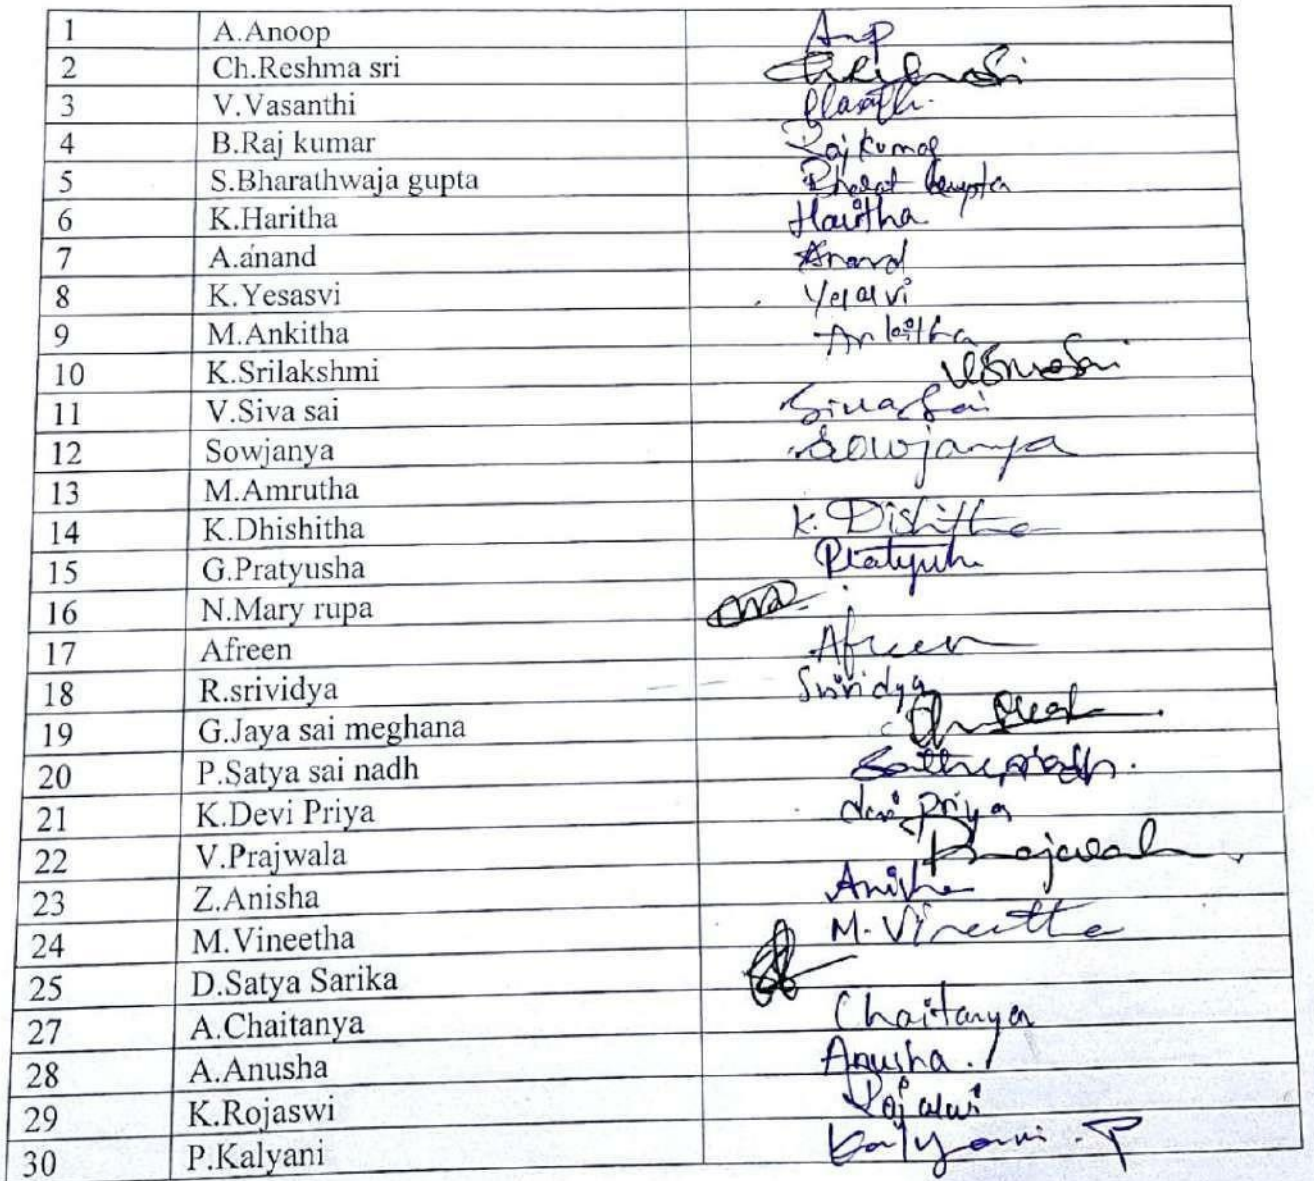 1 A.Anoop Anp
2 Ch.Reshma sri
3 V.Vasanthi
4 B.Raj kumar Rajkumar
5 S.Bharathwaja gupta Bharat Gupta
6 K.Haritha Haritha
7 A.anand Anand
8 K.Yesasvi Yesasvi
9 M.Ankitha Ankitha
10 K.Srilakshmi
11 V.Siva sai Siva Sai
12 Sowjanya Sowjanya
13 M.Amrutha
14 K.Dhishitha K. Dishitha
15 G.Pratyusha Pratyusha
16 N.Mary rupa
17 Afreen Afreen
18 R.srividya Srividya
19 G.Jaya sai meghana
20 P.Satya sai nadh
21 K.Devi Priya devi priya
22 V.Prajwala
23 Z.Anisha Anisha
24 M.Vineetha M. Vineetha
25 D.Satya Sarika
27 A.Chaitanya Chaitanya
28 A.Anusha Anusha.
29 K.Rojaswi
30 P.Kalyani Kalyani. P